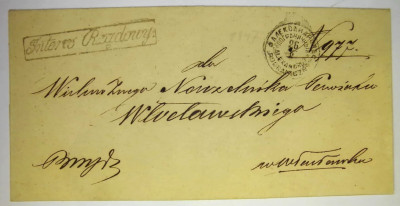 Interes Rządowy
N 977.
dla
Wielmożnego Naczelnika Powiatu
Włocławskiego
w Włocławku